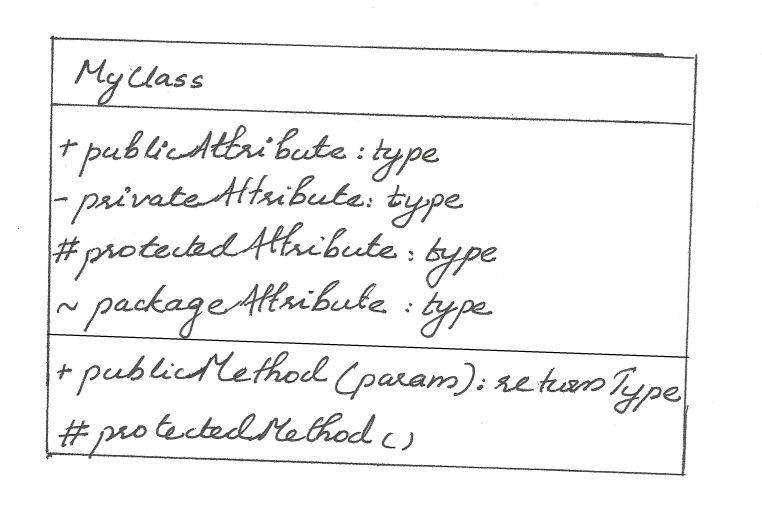 MyClass
+ publicAttribute : type
- privateAttribute : type
# protectedAttribute : type
~ packageAttribute : type
+ publicMethod (param) : returnType
# protectedMethod ()